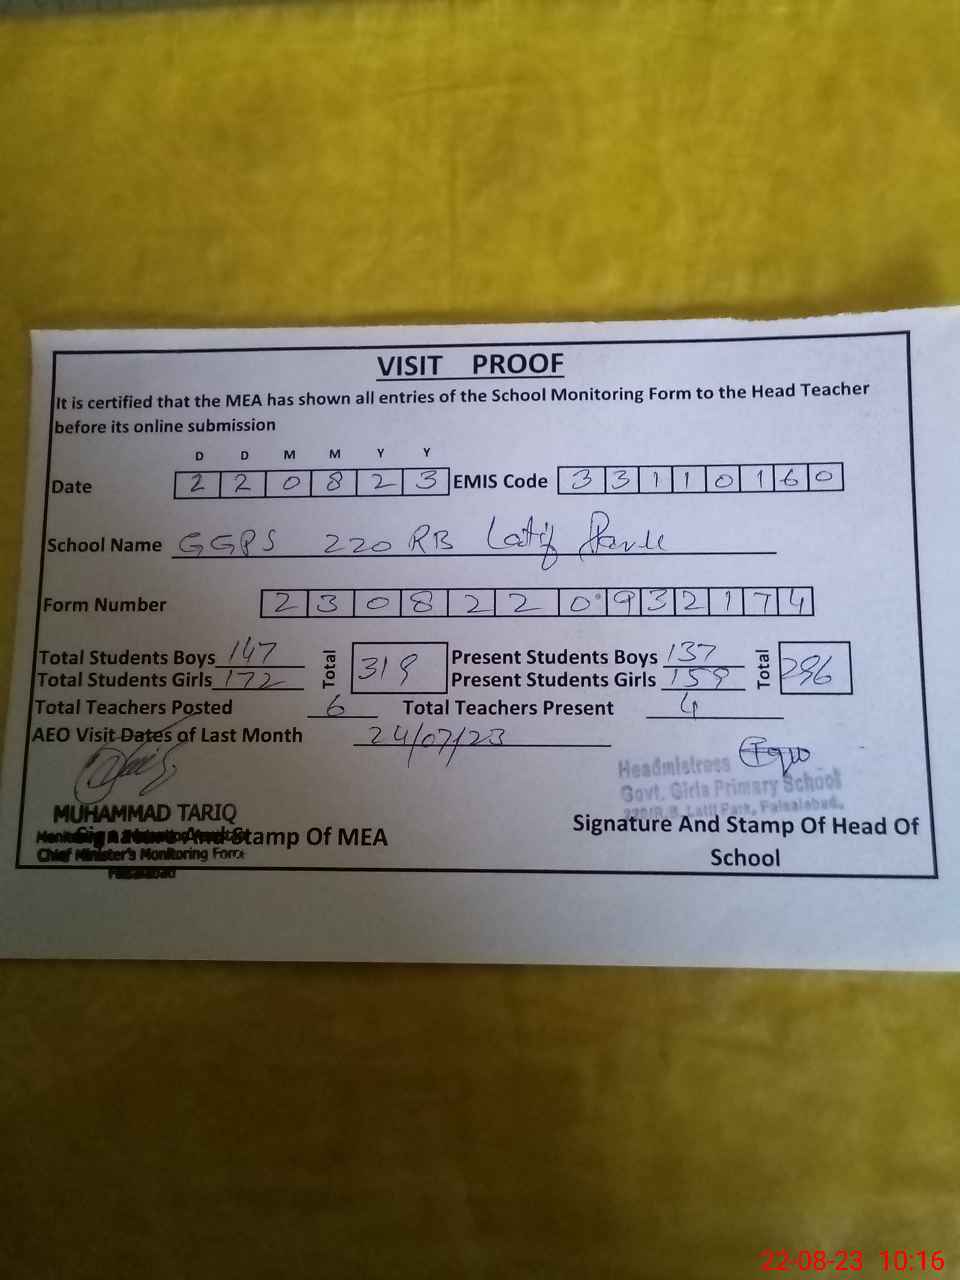 VISIT PROOF
It is certified that the MEA has shown all entries of the School Monitoring Form to the Head Teacher
before its online submission
D D M M Y Y
Date 2 2 0 8 2 3 EMIS Code 3 3 1 1 0 1 6 0
School Name GGPS 220 RB Latif Park
Form Number 2 3 0 8 2 2 0 9 3 2 1 7 4
Total Students Boys 147 Total 319 Present Students Boys 137 Total 296
Total Students Girls 172 Present Students Girls 159
Total Teachers Posted 6 Total Teachers Present 4
AEO Visit Dates of Last Month 24/07/23
Headmistress
Govt. Girls Primary School
Latif Park, Faisalabad.
MUHAMMAD TARIQ
Signature And Stamp Of MEA
Chief Minister's Monitoring Force
Faisalabad
Signature And Stamp Of Head Of
School
22-08-23 10:16